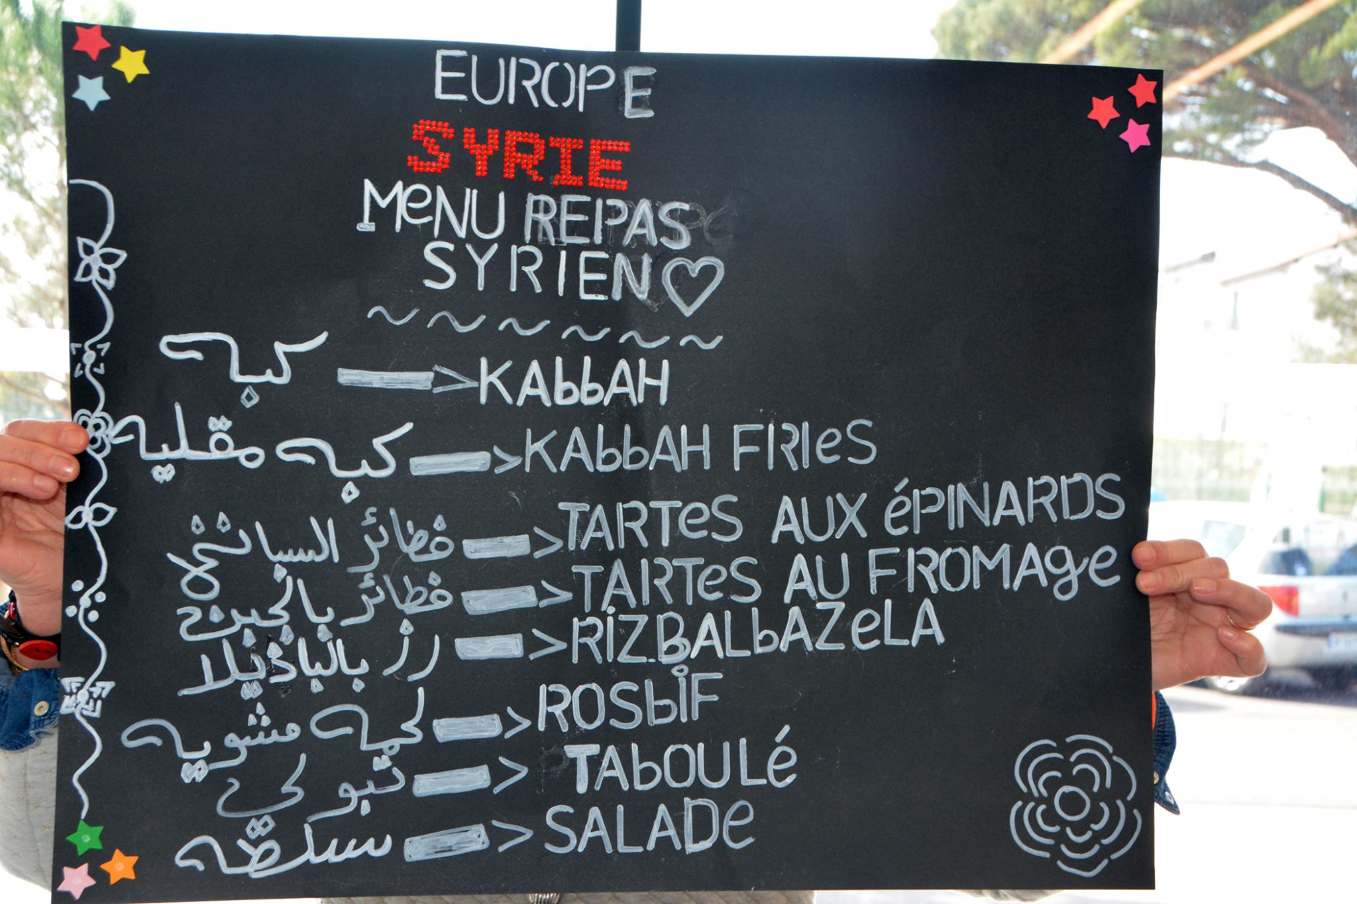 EUROPE
SYRIE
MeNU REPAS
SYRIEN
كبه KAbbAH
كبه مقليه KAbbAH FRIeS
فطائر السبانخ TARTeS AUX éPINARDS
فطائر بالجبن TARTeS AU FROMAge
رز بالباذيلا RIZ.BALbAZeLA
لحمه مشويه ROSbIF
تبولي TAbOULé
سلطه SALADe